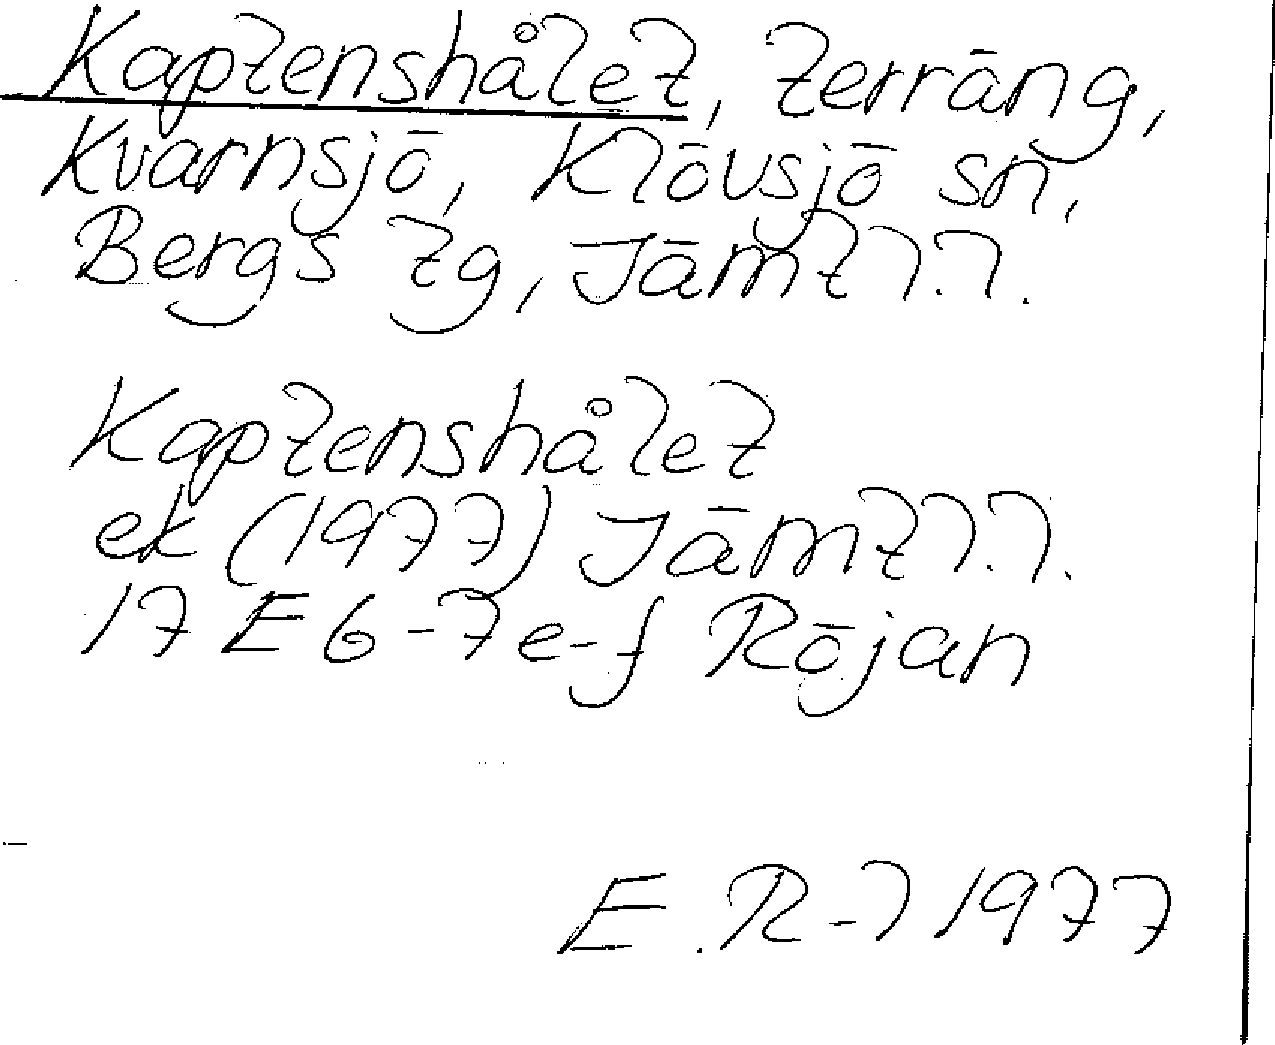 Kaptenshålet, terräng,
Kvarnsjö, Klövsjö sn,
Bergs tg, Jämtl.l.
Kaptenshålet
ek (1977) Jämtl.l.
17 E 6-7e-f Röjan
E.R-l 1977